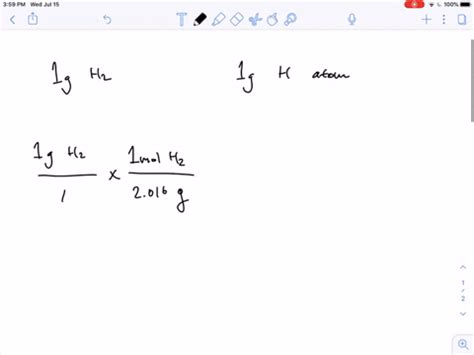 3:59 PM Wed Jul 15 100%
1g H₂ 1g H atom
1g H₂ 1 mol H₂
×
1 2.016 g
1
2